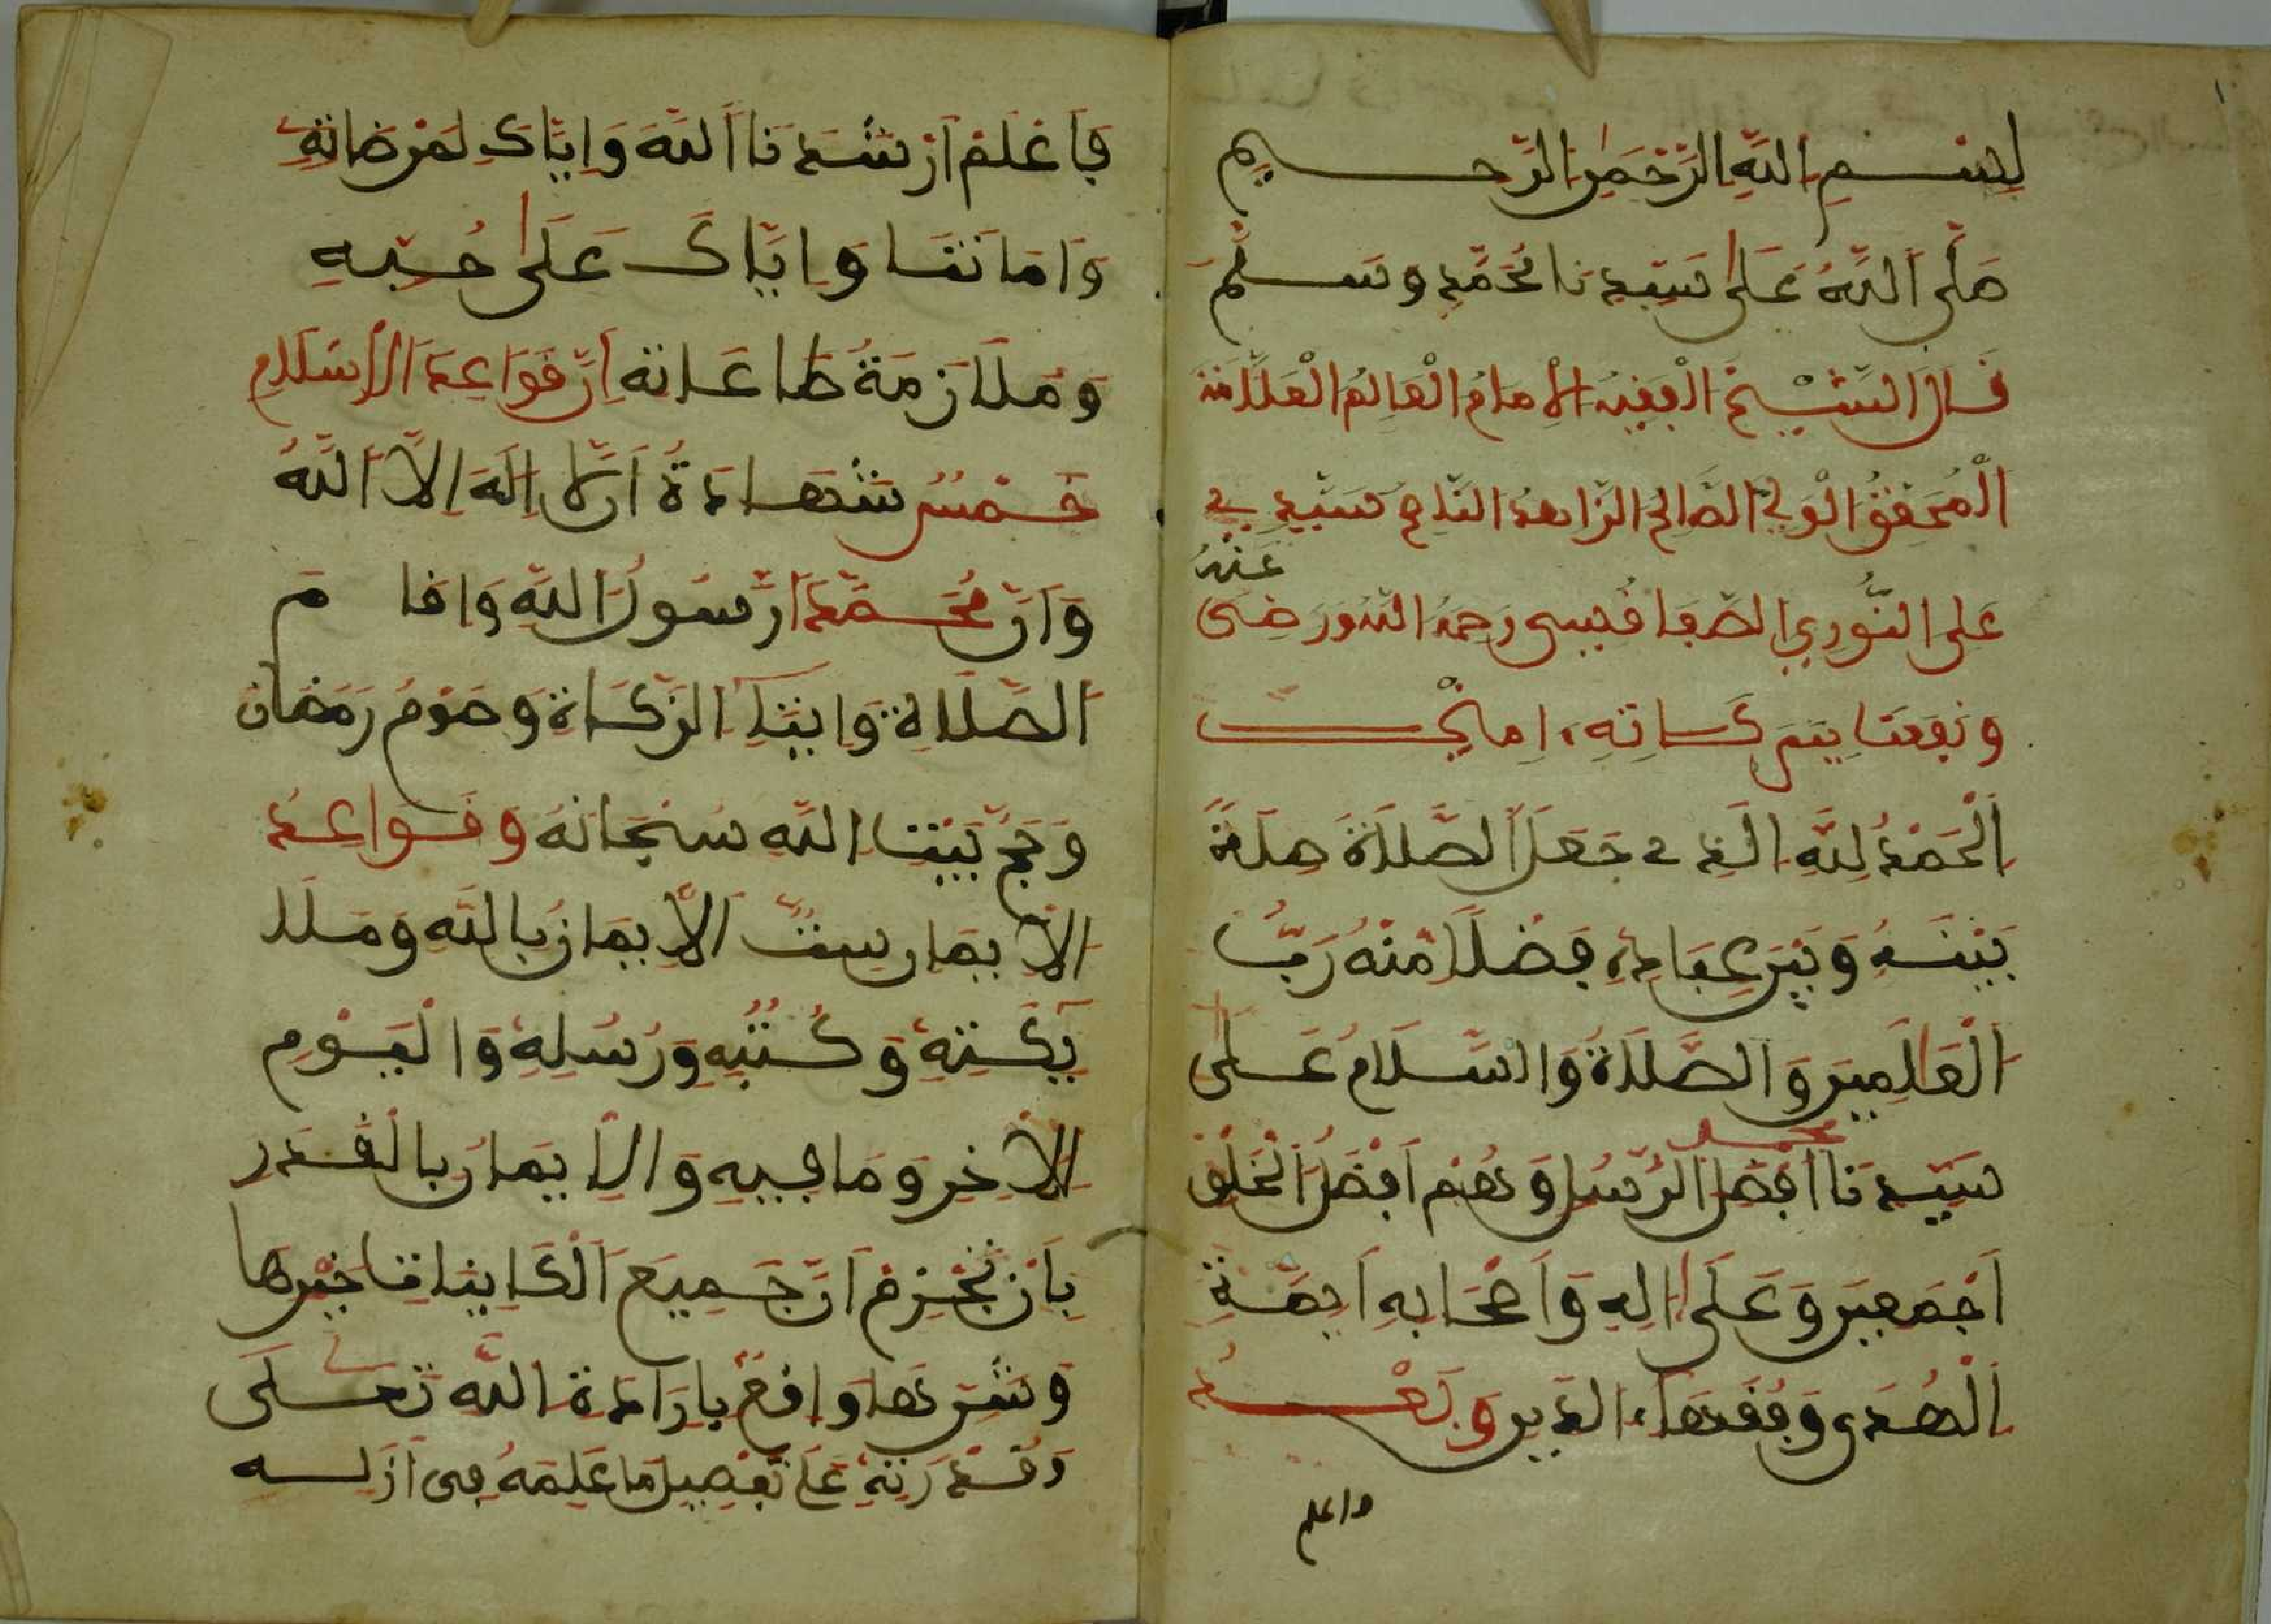 بِسْمِ اللَّهِ الرَّحْمَٰنِ الرَّحِيمِ
صَلَّى اللَّهُ عَلَىٰ سَيِّدِنَا مُحَمَّدٍ وَسَلَّمَ
قَالَ الشَّيْخُ الْفَقِيهُ الْإِمَامُ الْعَالِمُ الْعَلَّامَةُ
الْمُحَقِّقُ الْوَلِيُّ الصَّالِحُ الزَّاهِدُ النَّاصِحُ سَيِّدِي
عَلِي النُّورِي الصَّفَاقُسِي رَحِمَهُ اللَّهُ وَرَضِيَ عَنْهُ
وَنَفَعَنَا بِبَرَكَاتِهِ ءامين
اَلْحَمْدُ لِلَّهِ الَّذِي جَعَلَ الصَّلَاةَ صِلَةً
بَيْنَهُ وَبَيْنَ عِبَادِهِ فَضْلًا مِنْهُ رَبُّ
الْعَالَمِينَ وَالصَّلَاةُ وَالسَّلَامُ عَلَى
سَيِّدِنَا محمد أَفْضَلِ الرُّسُلِ وَهُمْ أَفْضَلُ الْخَلْقِ
أَجْمَعِينَ وَعَلَىٰ ءالِهِ وَأَصْحَابِهِ أَيِمَّةِ
الْهُدَى وَفُقَهَاءِ الدِّينِ وَبَعْدُ
واعلم
فَاعْلَمْ أَرْشَدَنَا اللَّهُ وَإِيَّاكَ لِمَرْضَاتِهِ
وَأَمَاتَنَا وَإِيَّاكَ عَلَىٰ حُبِّهِ
وَمُلَازَمَةِ طَاعَاتِهِ أَنَّ قَوَاعِدَ الْإِسْلَامِ
خَمْسٌ شَهَادَةُ أَن لَّا إِلَهَ إِلَّا اللَّهُ
وَأَنَّ مُحَمَّدًا رَّسُولُ اللَّهِ وَإِقَامُ
الصَّلَاةِ وَإِيتَاءُ الزَّكَاةِ وَصَوْمُ رَمَضَانَ
وَحَجُّ بَيْتِ اللَّهِ سُبْحَانَهُ وَقَوَاعِدُ
الْإِيمَانِ سِتٌّ الْإِيمَانُ بِاللَّهِ وَمَلَا
يِكَتِهِ وَكُتُبِهِ وَرُسُلِهِ وَالْيَوْمِ
الْآخِرِ وَمَا فِيهِ وَالْإِيمَانُ بِالْقَدَرِ
بِأَنْ نَجْزِمَ أَنَّ جَمِيعَ الْكَايِنَاتِ خَيْرِهَا
وَشَرِّهَا وَاقِعٌ بِإِرَادَةِ اللَّهِ تَعَالَى
وَقُدْرَتِهِ عَلَى تَفْصِيلِ مَا عَلِمَهُ فِي أَزَلِهِ